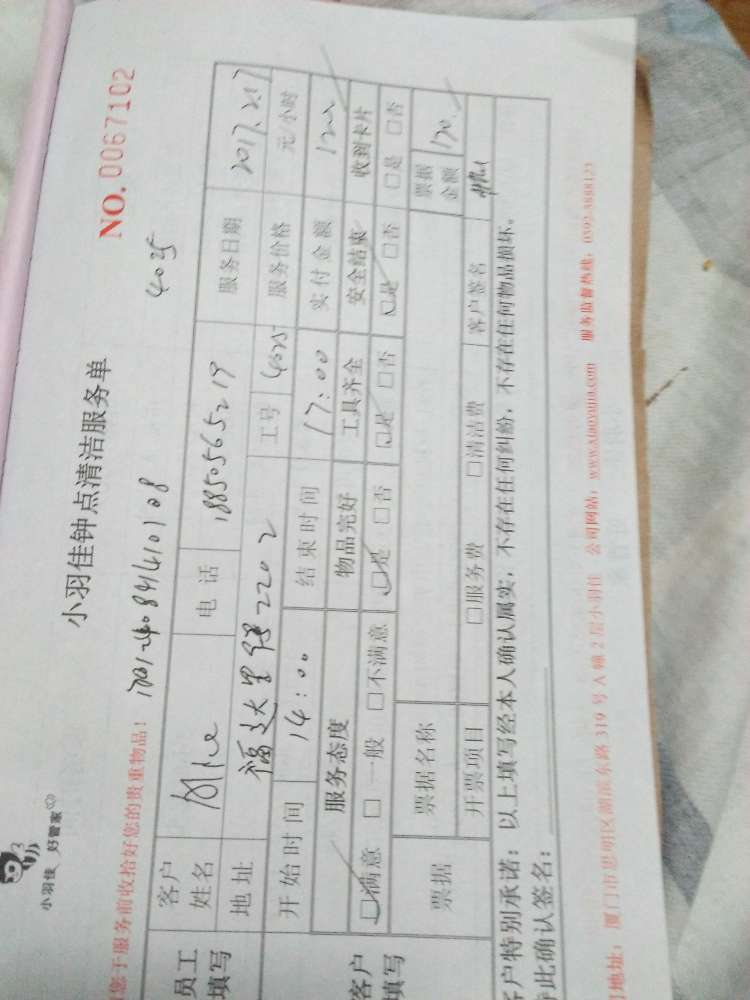 小羽佳 好管家
小羽佳钟点清洁服务单
NO. 0067102
您于服务前收拾好您的贵重物品！
4025
员工填写
客户姓名
电话 18850565219
服务日期 2017.2.17
地址
2202
工号 4025
服务价格 元/小时
开始时间 14:00
结束时间 17:00
实付金额
客户填写
服务态度 物品完好 工具齐全 安全结束 收到卡片
☑满意 □一般 □不满意 ☑是 □否 ☑是 □否 ☑是 □否 □是 □否
票据
票据名称
票据金额 120.
开票项目 □服务费 □清洁费
客户签名
客户特别承诺：以上填写经本人确认属实，不存在任何纠纷，不存在任何物品损坏。
此确认签名：
地址：厦门市思明区湖滨东路 319 号 A 幢 2 层小羽佳 公司网站：www.xiaoyujia.com 服务监督热线：0592-8888123